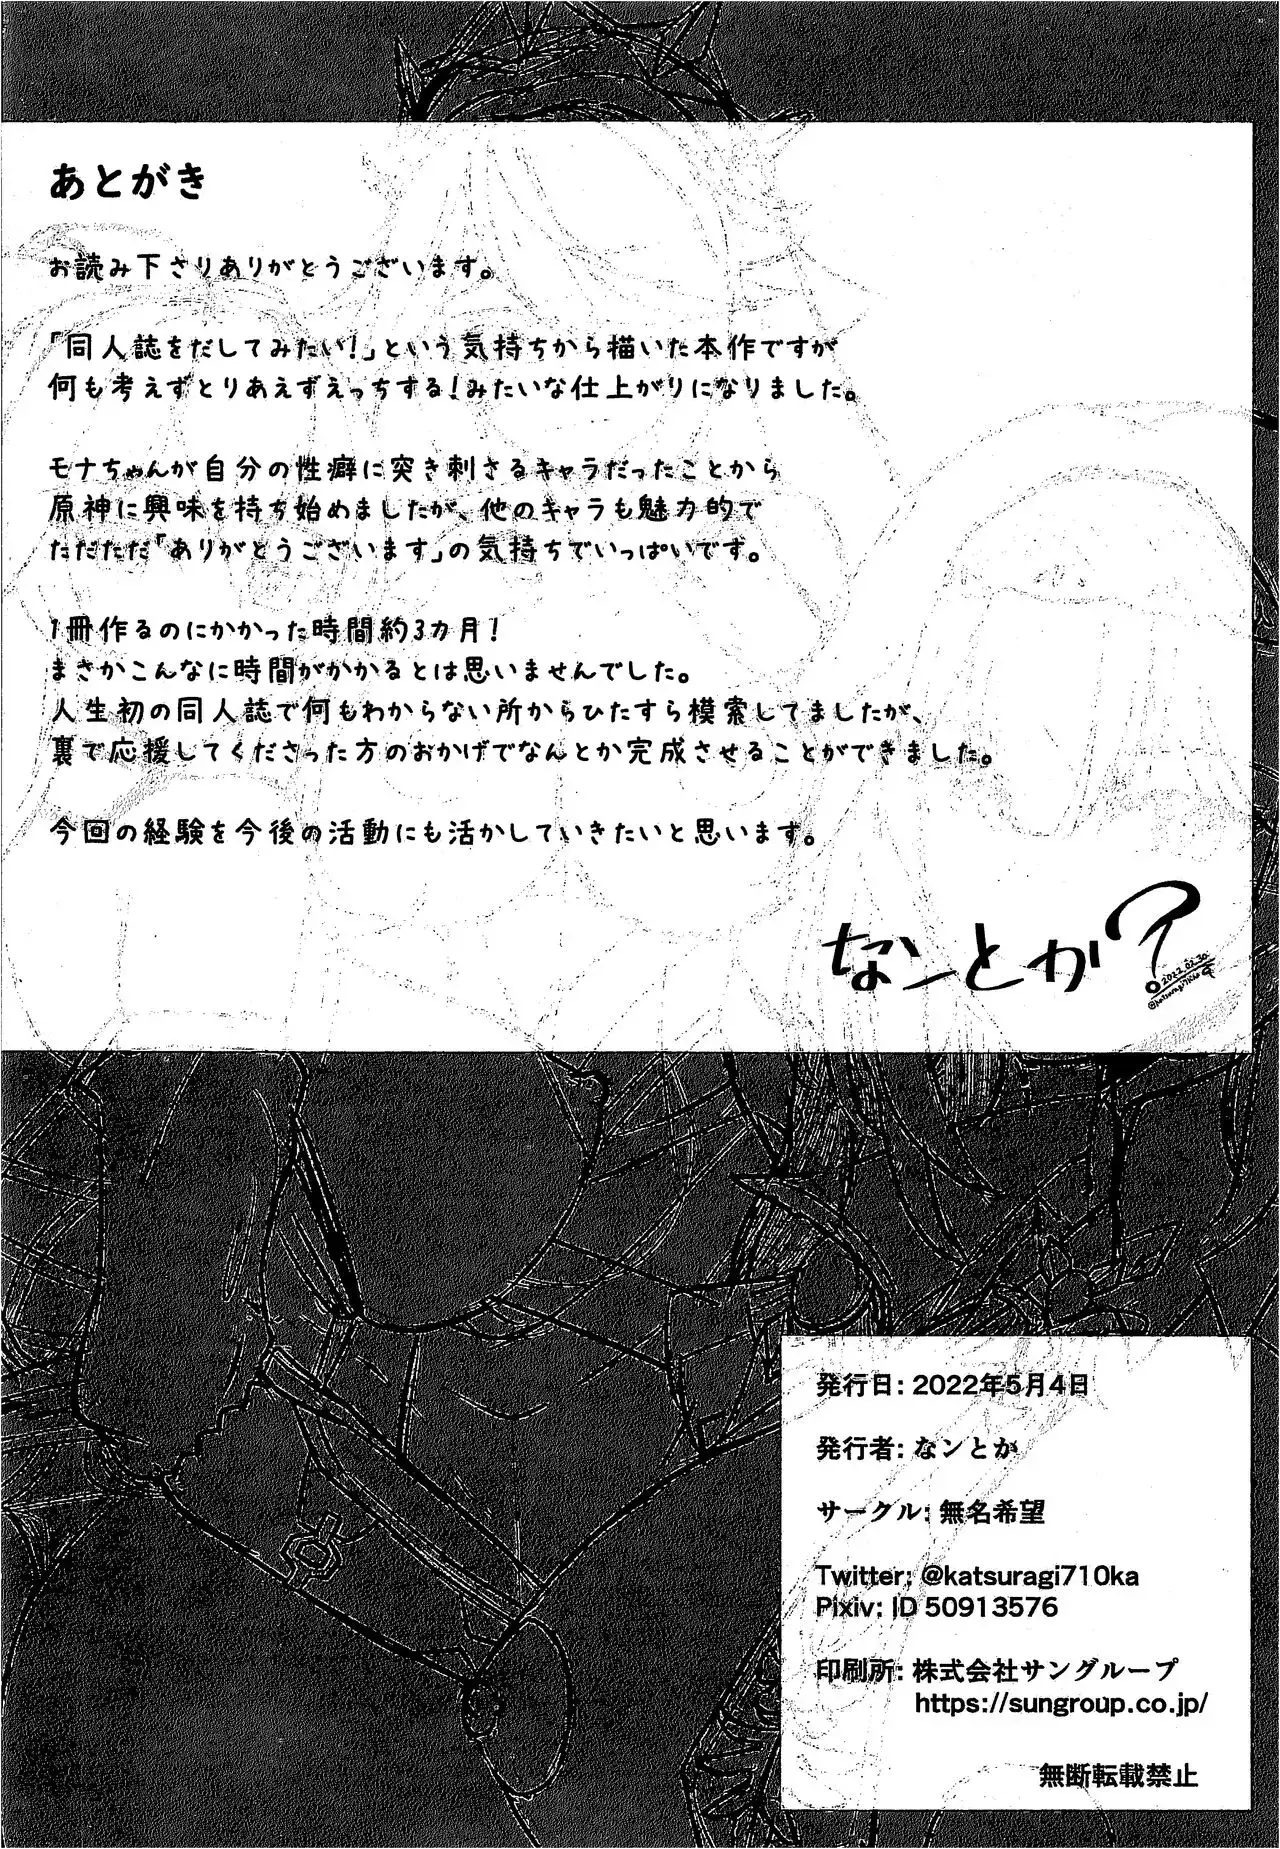 あとがき
お読み下さりありがとうございます。
「同人誌をだしてみたい!」という気持ちから描いた本作ですが
何も考えずとりあえずえっちする!みたいな仕上がりになりました。
モナちゃんが自分の性癖に突き刺さるキャラだったことから
原神に興味を持ち始めましたが、他のキャラも魅力的で
ただただ「ありがとうございます」の気持ちでいっぱいです。
1冊作るのにかかった時間約3カ月!
まさかこんなに時間がかかるとは思いませんでした。
人生初の同人誌で何もわからない所からひたすら模索してましたが、
裏で応援してくださった方のおかげでなんとか完成させることができました。
今回の経験を今後の活動にも活かしていきたいと思います。
なンとか?
@katsuragi710ka
発行日: 2022年5月4日
発行者: なンとか
サークル: 無名希望
Twitter: @katsuragi710ka
Pixiv: ID 50913576
印刷所: 株式会社サングループ
https://sungroup.co.jp/
無断転載禁止